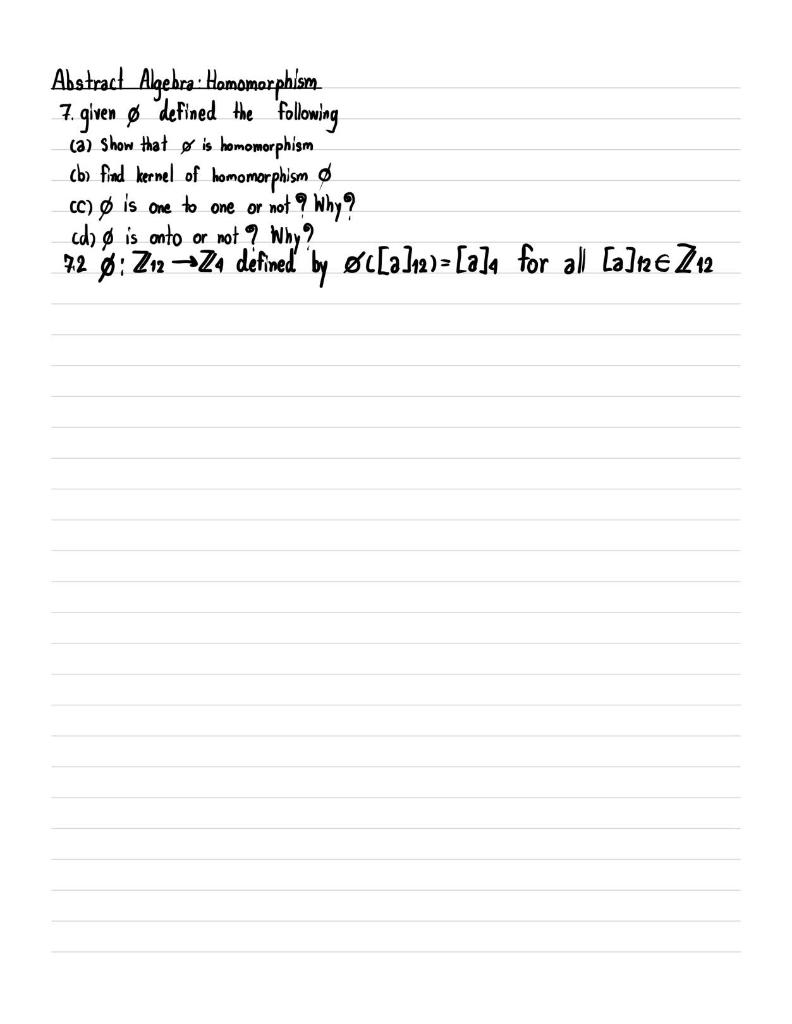 Abstract Algebra: Homomorphism
7. given ø defined the following
(a) Show that ø is homomorphism
(b) find kernel of homomorphism ø
(c) ø is one to one or not? Why?
(d) ø is onto or not? Why?
7.2 ø: ℤ₁₂ → ℤ₄ defined by ø([a]₁₂) = [a]₄ for all [a]₁₂ ∈ ℤ₁₂